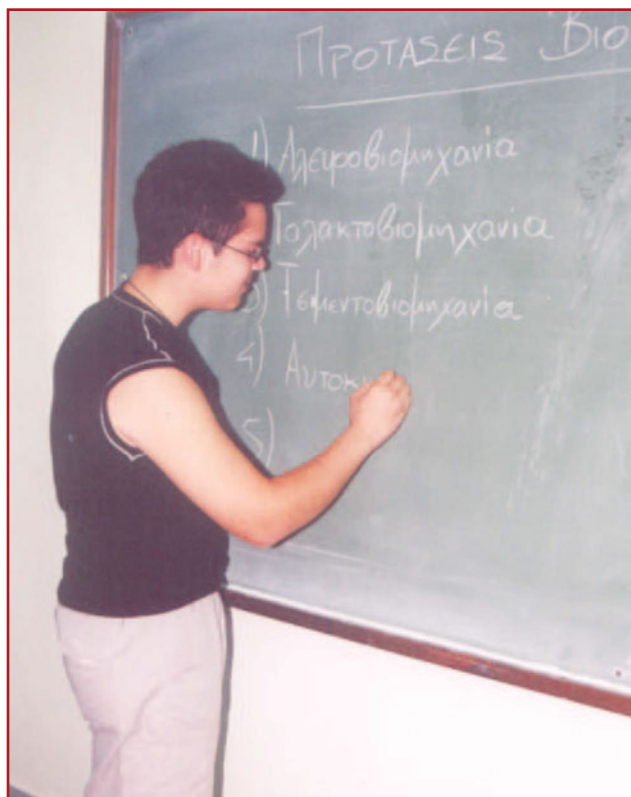 ΠΡΟΤΑΣΕΙΣ ΒΙΟ
1) Αλευροβιομηχανία
Γαλακτοβιομηχανία
3) Τσιμεντοβιομηχανία
4) Αυτοκ
5)